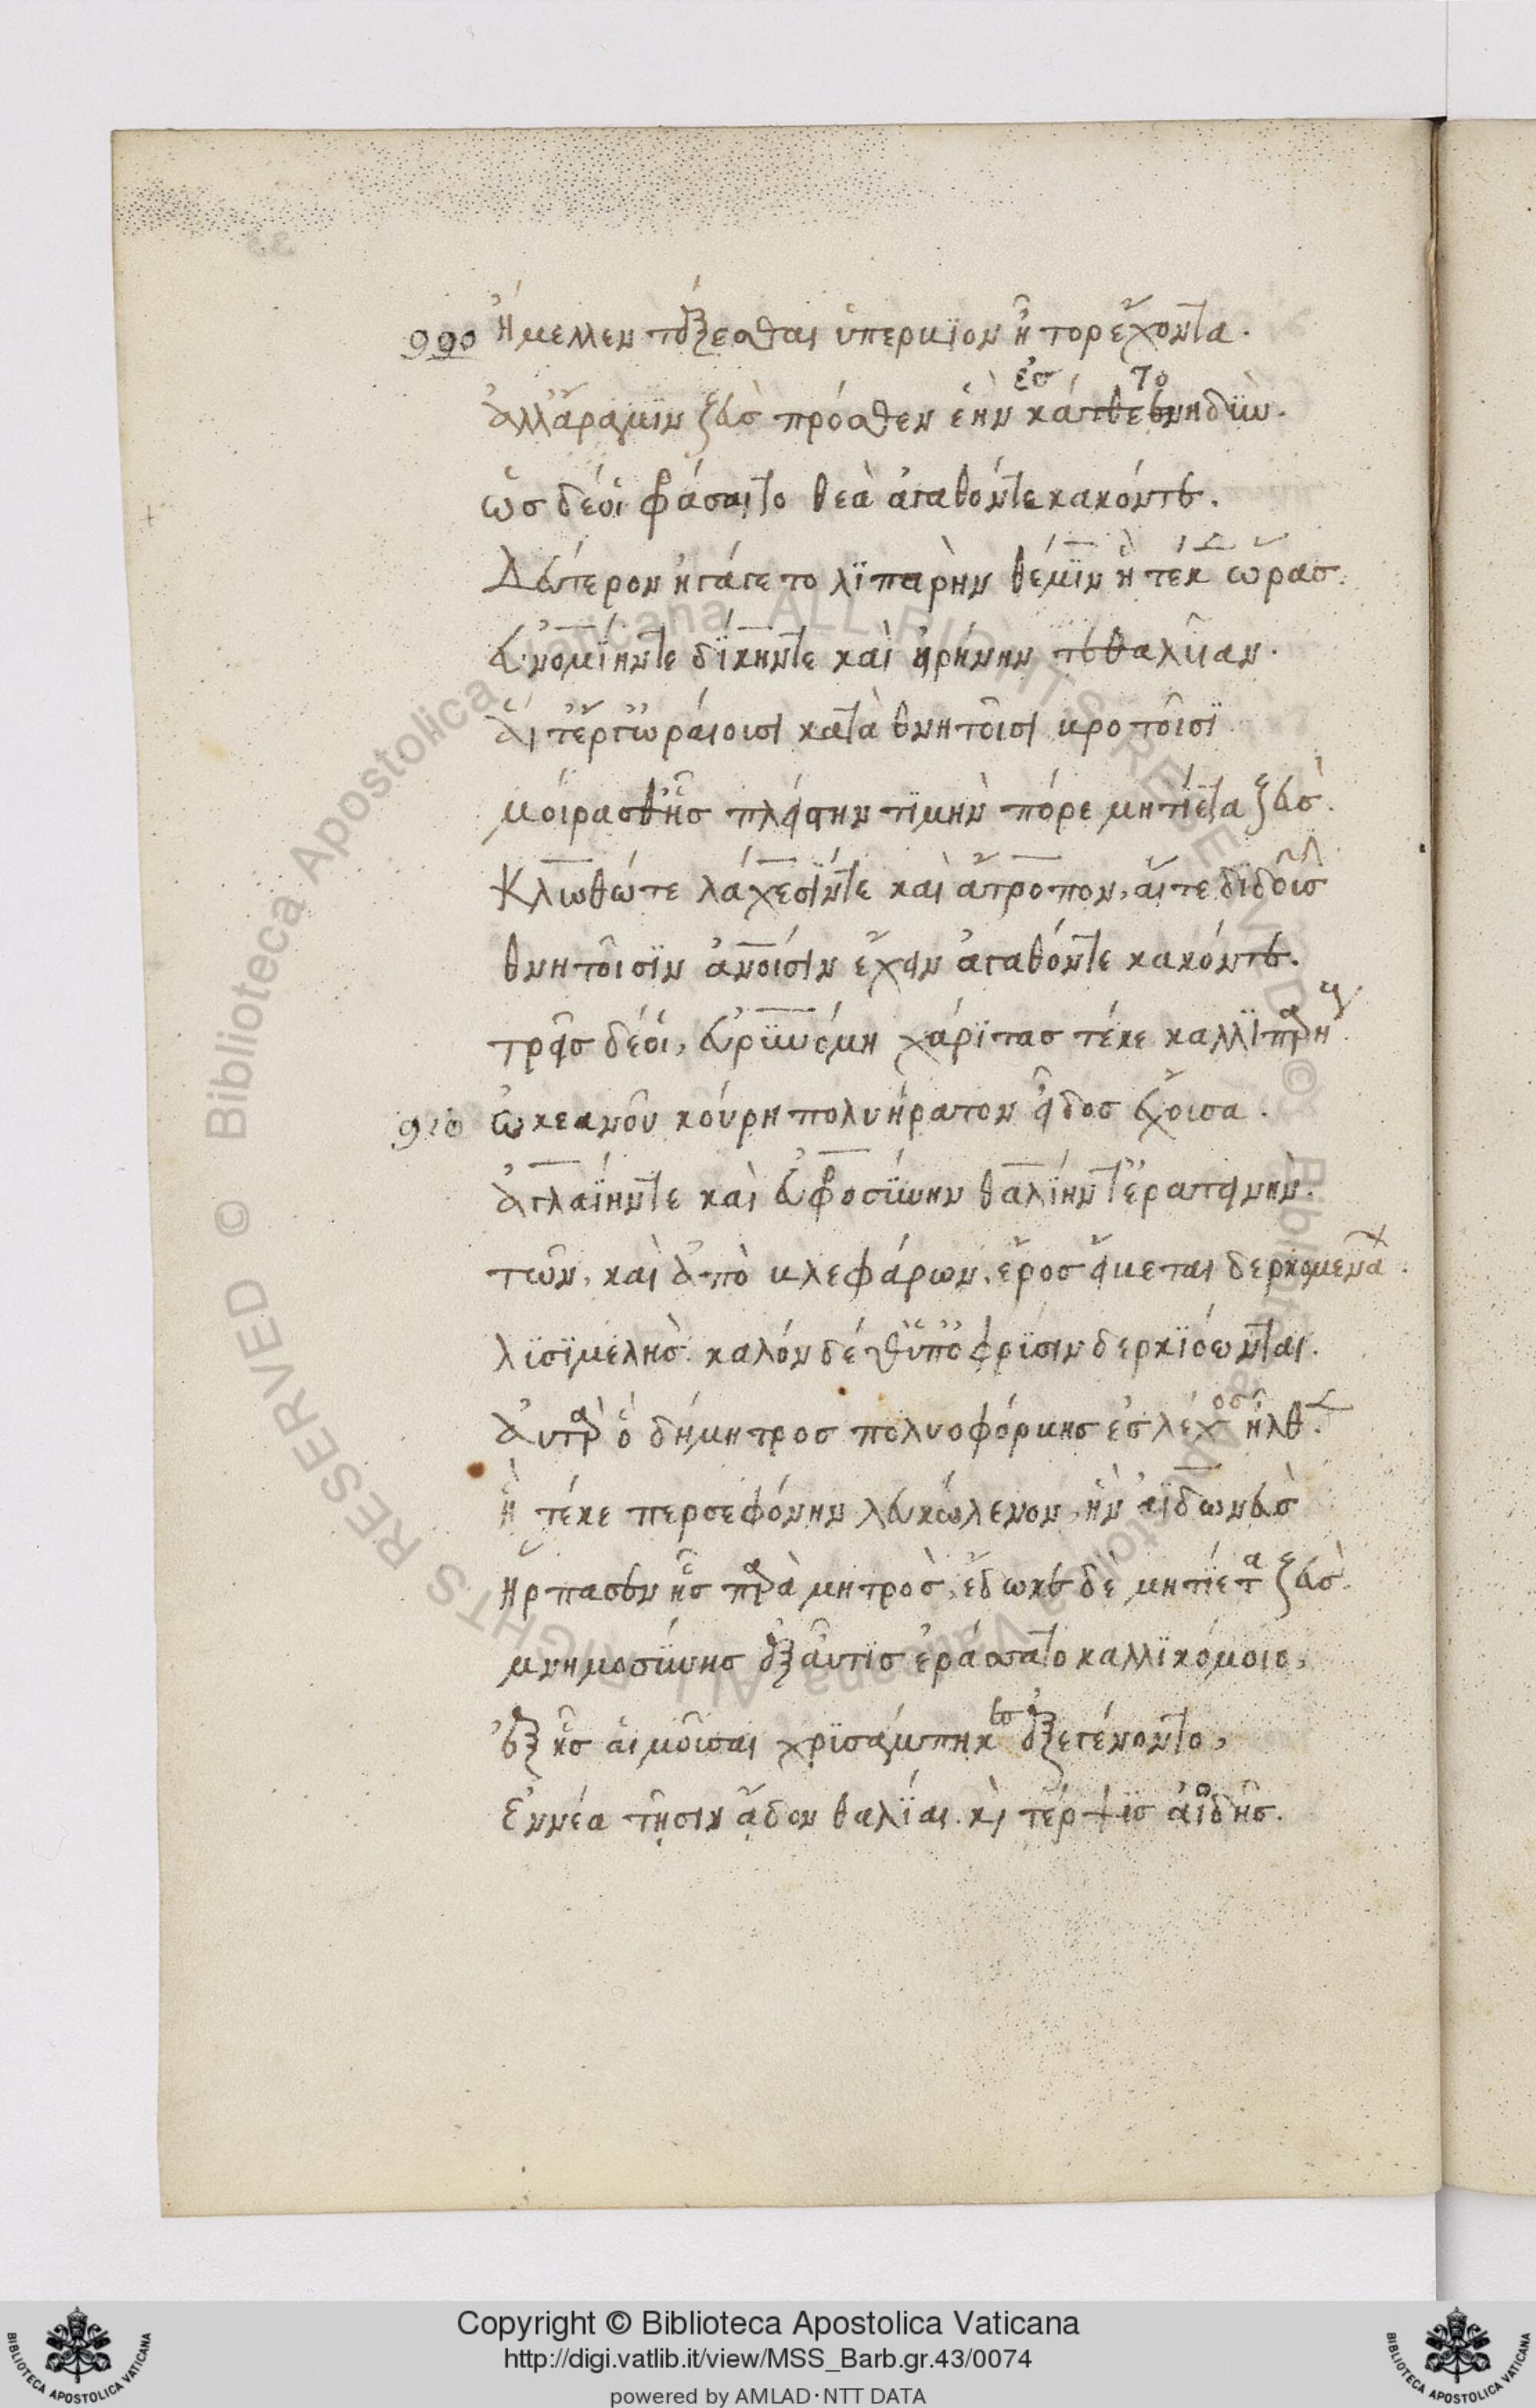 900 Ἤμελλεν τέξεσθαι ὑπέρβιον ἦτορ ἔχοντα.
ἀλλ' ἄρα μιν ζεὺς πρόσθεν ἑὴν ἐσκάτθετο νηδύν.
ὥς δέ οἱ φράσσαιτο θεὰ ἀγαθόν τε κακόν τε.
Δεύτερον ἠγάγετο λιπαρὴν θέμιν ἣ τέκεν ὥρας.
εὐνομίην τε δίκην τε καὶ εἰρήνην τεθαλυῖαν.
αἵ τ' ἔργ' ὡραίουσι καταθνητοῖσι βροτοῖσι
μοίρας θ' ᾗς πλείστην τιμὴν πόρε μητίετα ζεύς.
Κλωθώ τε λάχεσίν τε καὶ ἄτροπον, αἵτε διδοῦσι
θνητοῖσιν ἀνοισιν ἔχειν ἀγαθόν τε κακόν τε.
τρεῖς δέ οἱ, εὐρυνόμη χάριτας τέκε καλλιπαρήους
910 ὠκεανοῦ κούρη πολυήρατον εἶδος ἔχουσα.
ἀγλαΐην τε καὶ εὐφροσύνην θαλίην τ' ἐρατεινήν.
τῶν, καὶ ἀπὸ βλεφάρων, ἔρος εἴβεται δερκομενάων.
λυσιμελής. καλὸν δέ θ' ὑπ' ὀφρύσιν δερκιόωνται.
Αὐτὰρ ὁ δήμητρος πολυφόρβης ἐς λέχος ἦλθεν.
ἣ τέκε περσεφόνην λευκώλενον, ἣν ἀϊδωνεὺς
ἥρπασεν ἧς παρὰ μητρός, ἔδωκε δὲ μητίετα ζεύς.
μνημοσύνης δ' ἐξαῦτις ἐράσσατο καλλικόμοιο,
ἐξ ἧς αἱ μοῦσαι χρυσάμπυκες ἐξεγένοντο,
Ἐννέα τῇσιν ἅδον θαλίαι καὶ τέρψις ἀοιδῆς.
Copyright © Biblioteca Apostolica Vaticana
http://digi.vatlib.it/view/MSS_Barb.gr.43/0074
powered by AMLAD·NTT DATA